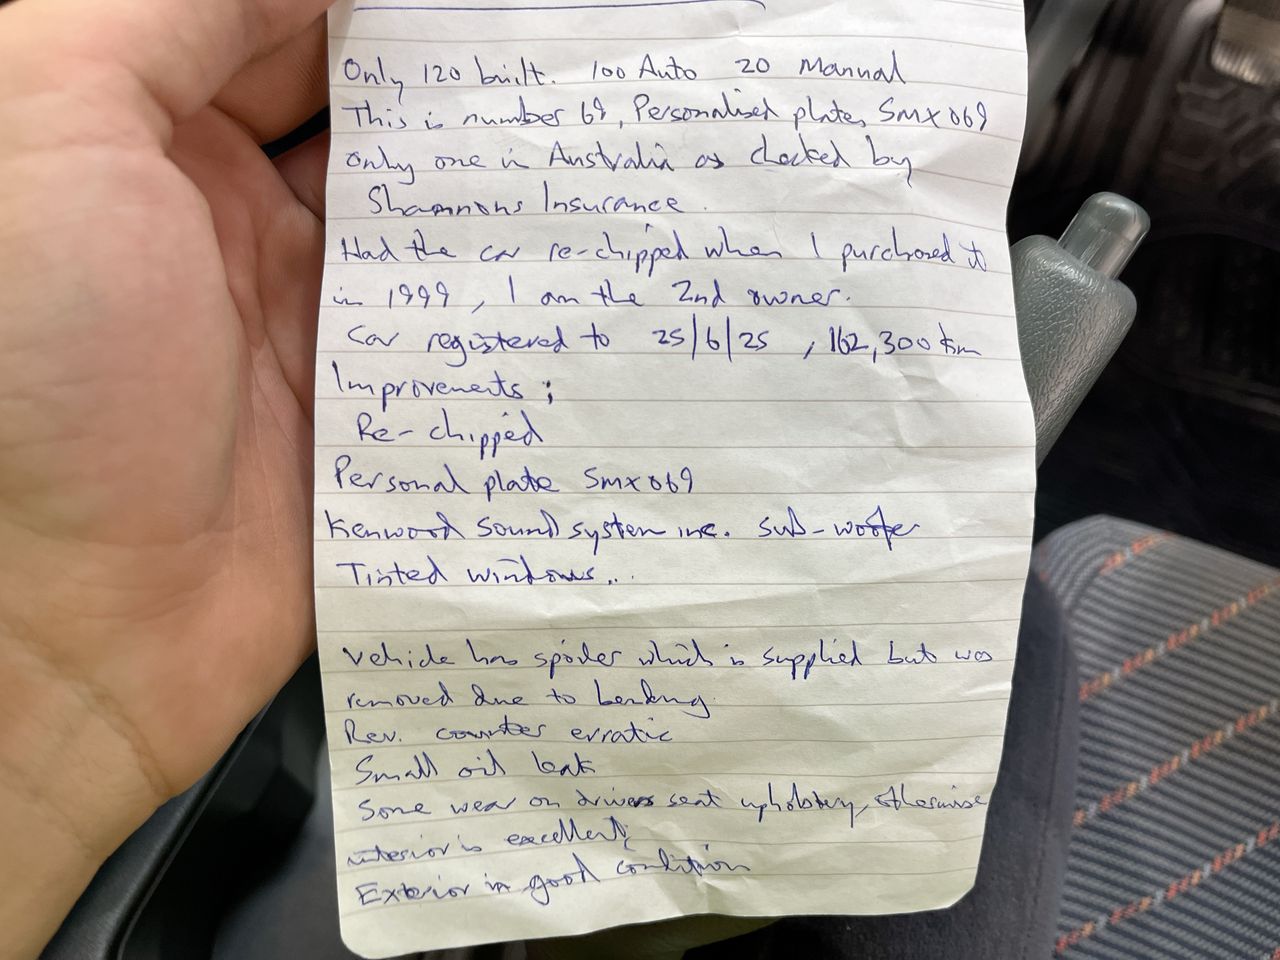 Only 120 built. 100 Auto 20 Manual
This is number 69, Personalised plates SMX069
only one in Australia as checked by
Shannons Insurance.
Had the car re-chipped when I purchased it
in 1999, I am the 2nd owner.
Car registered to 25/6/25, 162,300 km
Improvements;
Re-chipped
Personal plate SMX069
Kenwood Sound system inc. sub-woofer
Tinted windows..
Vehicle has spoiler which is supplied but was
removed due to bending
Rev. counter erratic
Small oil leak
Some wear on drivers seat upholstery, otherwise
interior is excellent;
Exterior in good condition